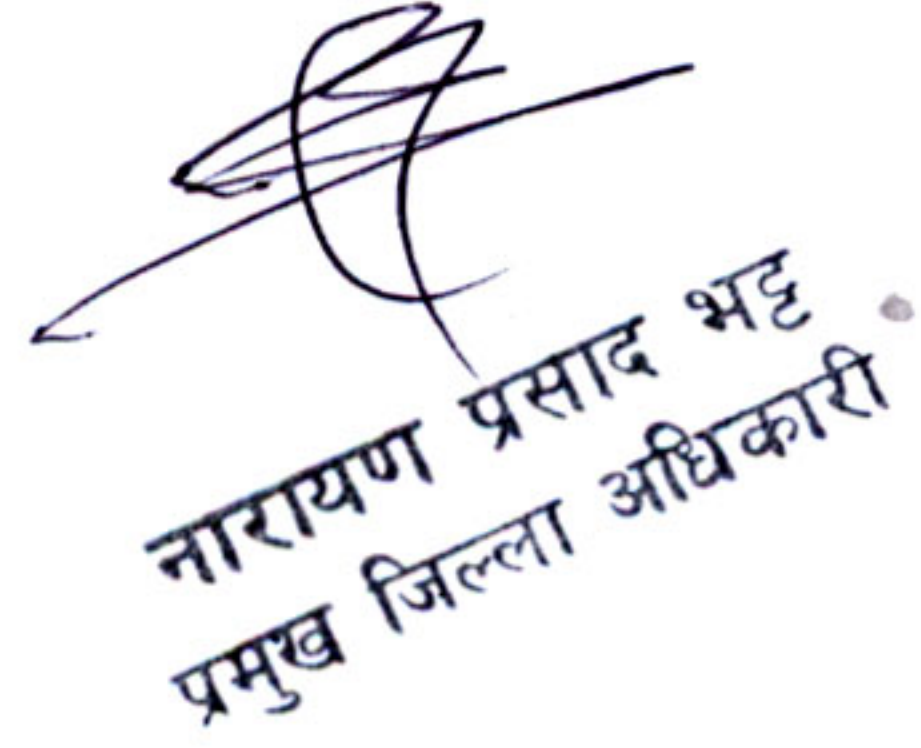 नारायण प्रसाद भट्ट
प्रमुख जिल्ला अधिकारी